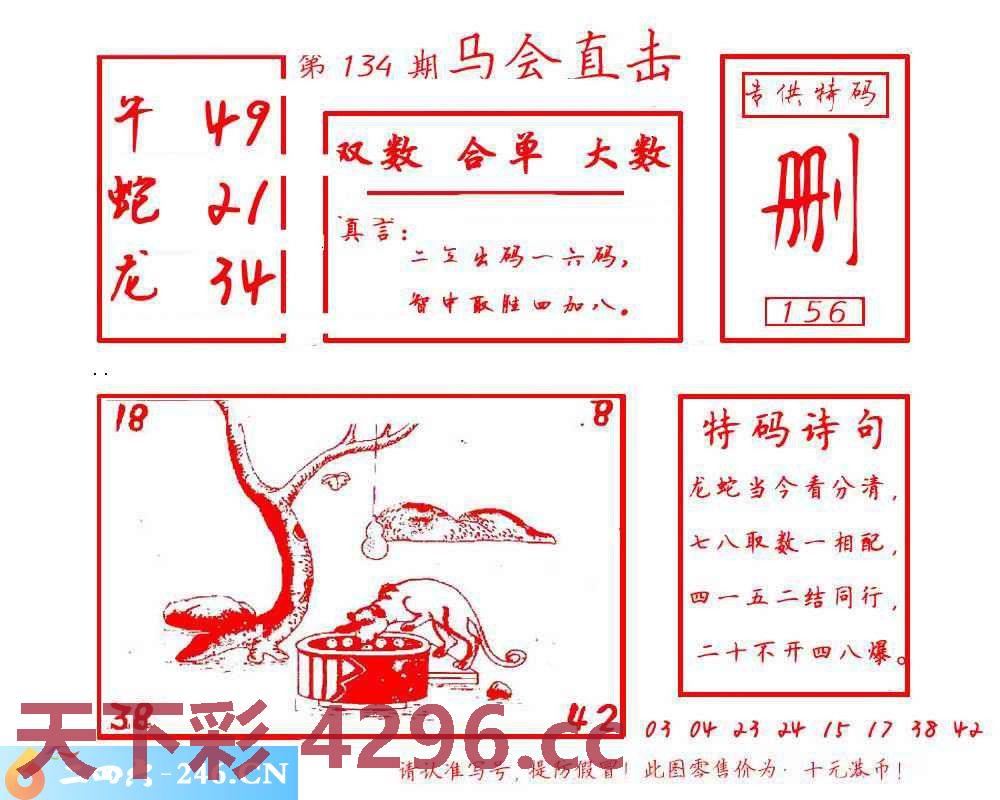 第 134 期 马会直击
牛 49
蛇 21
龙 34
双数 合单 大数
真言：
二五出码一六码，
智中取胜四加八。
专供特码
删
156
18
8
38
42
特码诗句
龙蛇当今看分清，
七八取数一相配，
四一五二结同行，
二十不开四八爆。
03 04 23 24 15 17 38 42
天下彩 4296.cc
-246.CN
请认准写号，提防假冒！此图零售价为·十元港币！